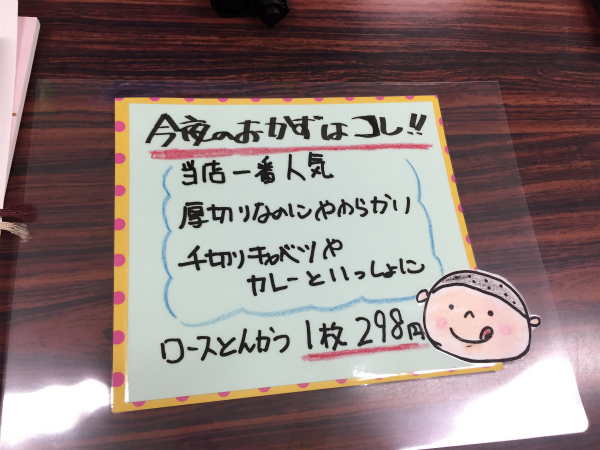 今夜のおかずはコレ!!
当店一番人気
厚切りなのにやわらかい
千切りキャベツや
カレーといっしょに
ロースとんかつ 1枚 298円